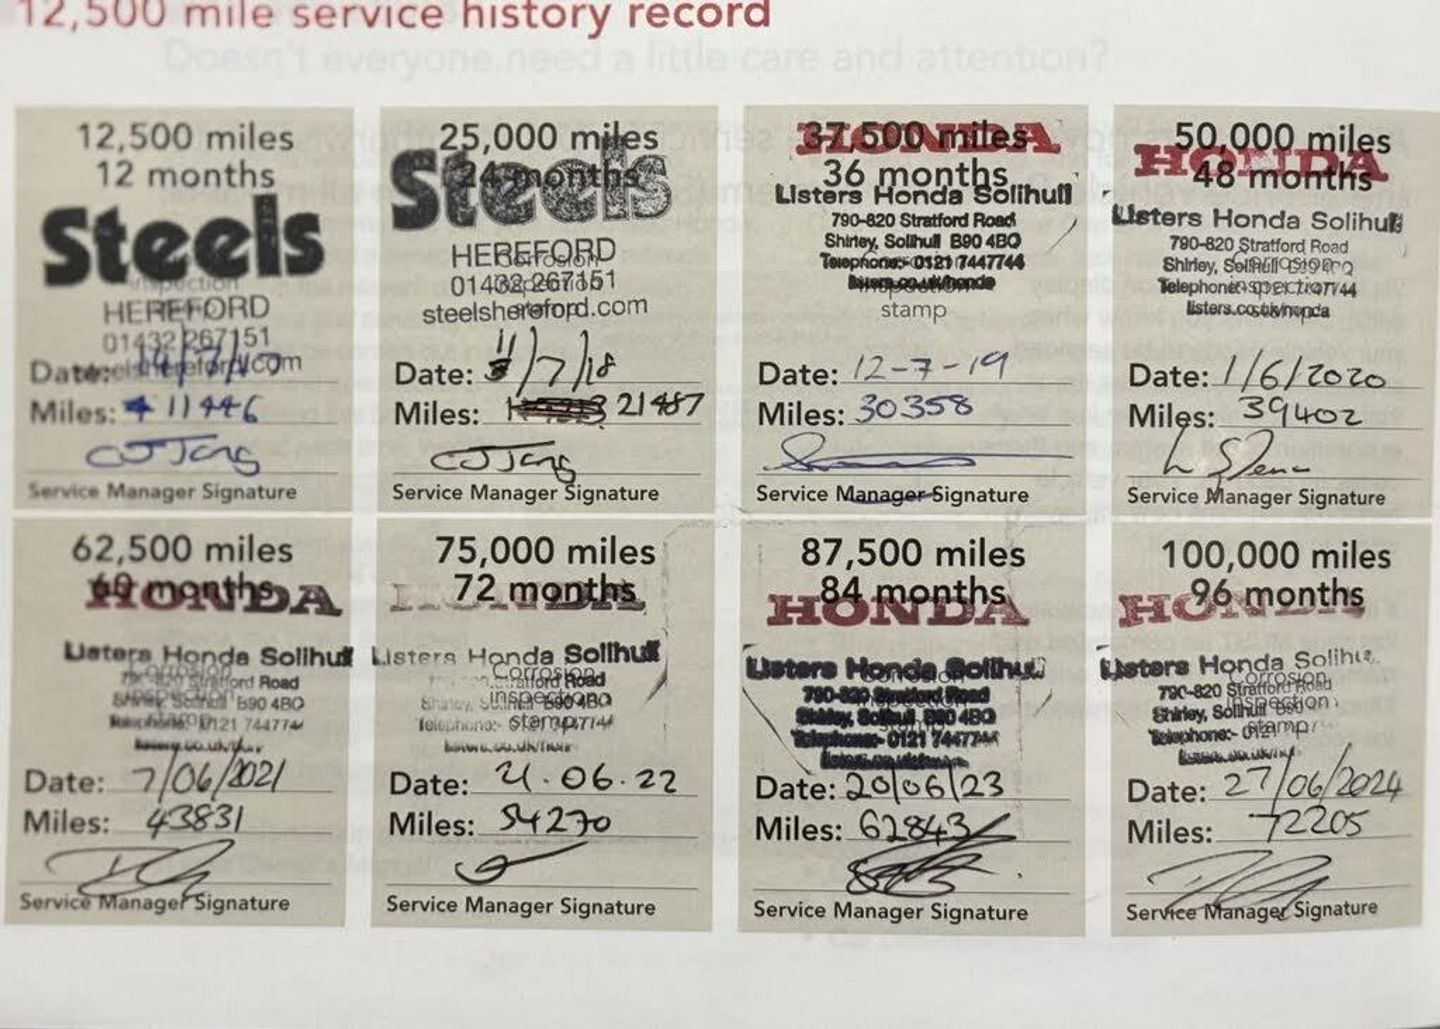 12,500 mile service history record
Doesn't everyone need a little care and attention?
12,500 miles
12 months
Steels
inspection
HEREFORD
01432 267151
steelshereford.com
Date: 14/7/17
Miles: 11446
Service Manager Signature
25,000 miles
24 months
Steels
HEREFORD
Corrosion
01432 267151
inspection
steelshereford.com
Date: 11/7/18
Miles: 21487
Service Manager Signature
37,500 miles
HONDA
36 months
Listers Honda Solihull
790-820 Stratford Road
Shirley, Solihull B90 4BQ
Telephone:- 0121 7447744
listers.co.uk/honda
inspection
stamp
Date: 12-7-19
Miles: 30358
Service Manager Signature
50,000 miles
HONDA
48 months
Listers Honda Solihull
790-820 Stratford Road
Corrosion
Shirley, Solihull B90 4BQ
Telephone:- 0121 7447744
inspection
listers.co.uk/honda
Date: 1/6/2020
Miles: 39402
Service Manager Signature
62,500 miles
60 months
HONDA
Listers Honda Solihull
Corrosion
790-820 Stratford Road
inspection
Shirley, Solihull B90 4BQ
stamp
Telephone:- 0121 7447744
Date: 7/06/2021
Miles: 43831
Service Manager Signature
75,000 miles
72 months
HONDA
Listers Honda Solihull
Corrosion
Stratford Road
inspection
Shirley, Solihull B90 4BQ
Telephone:-
stamp
Date: 21.06.22
Miles: 54270
Service Manager Signature
87,500 miles
84 months
HONDA
Listers Honda Solihull
790-820 Stratford Road
Shirley, Solihull B90 4BQ
Telephone:- 0121 7447744
Date: 20/06/23
Miles: 62843
Service Manager Signature
100,000 miles
96 months
HONDA
Listers Honda Solihull
Corrosion
790-820 Stratford Road
inspection
Shirley, Solihull B90
stamp
Telephone:- 0121
Date: 27/06/2024
Miles: 72205
Service Manager Signature